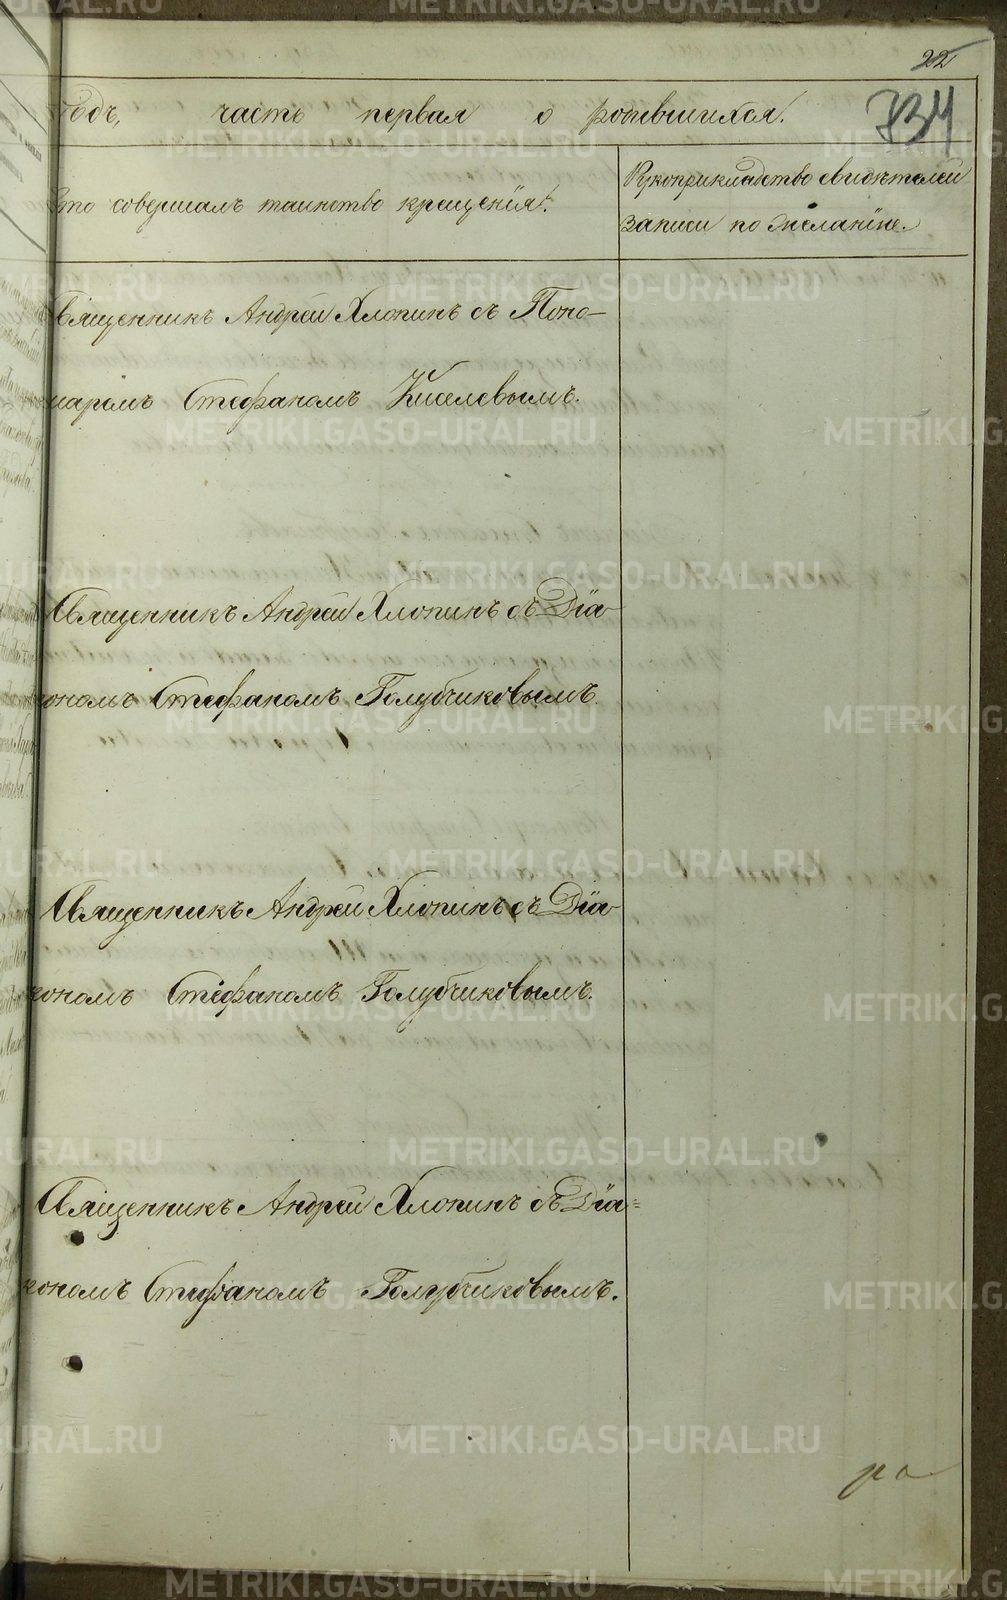 22
годъ, часть первая о родившихся.
734
Кто совершалъ таинство крещенія.
Рукоприкладство свидѣтелей
записи по желанію.
Священникъ Андрей Хлопинъ съ Поно-
маремъ Стефаномъ Киселевымъ.
Священникъ Андрей Хлопинъ съ Діа-
кономъ Стефаномъ Голубчиковымъ.
Священникъ Андрей Хлопинъ съ Діа-
кономъ Стефаномъ Голубчиковымъ.
Священникъ Андрей Хлопинъ съ Діа=
кономъ Стефаномъ Голубчиковымъ.
ра
METRIKI.GASO-URAL.RU